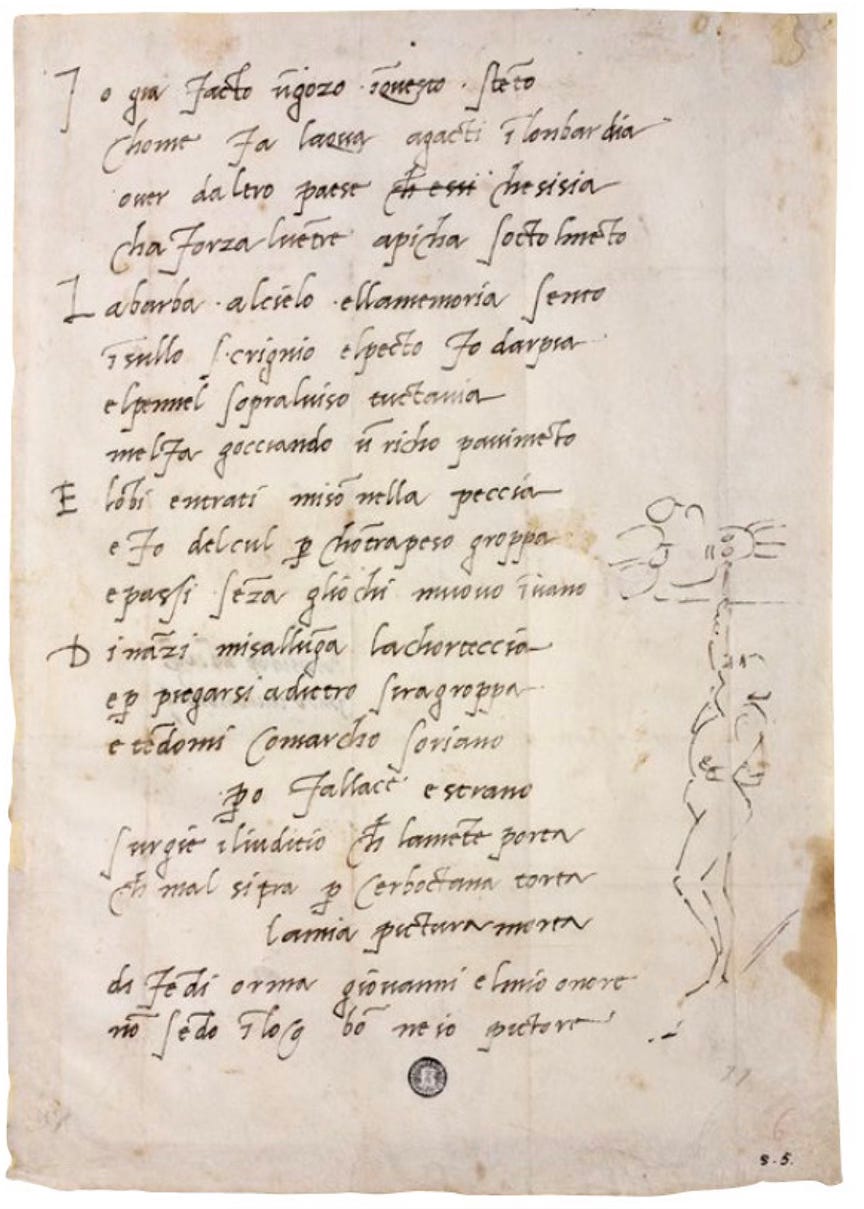 Io gia facto ūgozo īquesto stēto
chome fa laqua agacti ī lonbardia
over daltro paese ch essi chesisia
cha forza lvētre apicha socto lmēto
La barba alcielo ellamemoria sento
īsullo scrignio elpecto fo darpia
elpennel sopralviso tuctavia
melfa gocciando ū richo pavimēto
E lōbi entrati misō nella peccia
e fo delcul p chōtrapeso groppa
epassi sēza gliochi muovo īvano
Dināzi misallūga lachorteccia
ep piegarsi adietro siragroppa
e tēdomi comarcho soriano
po fallace e strano
surgie iliuditio ch lamēte porta
ch mal sitra p cerboctana torta
lamia pictura morta
di fēdi orma giovanni elmio onore
nō sēdo ī log bō ne io pictore
8·5.